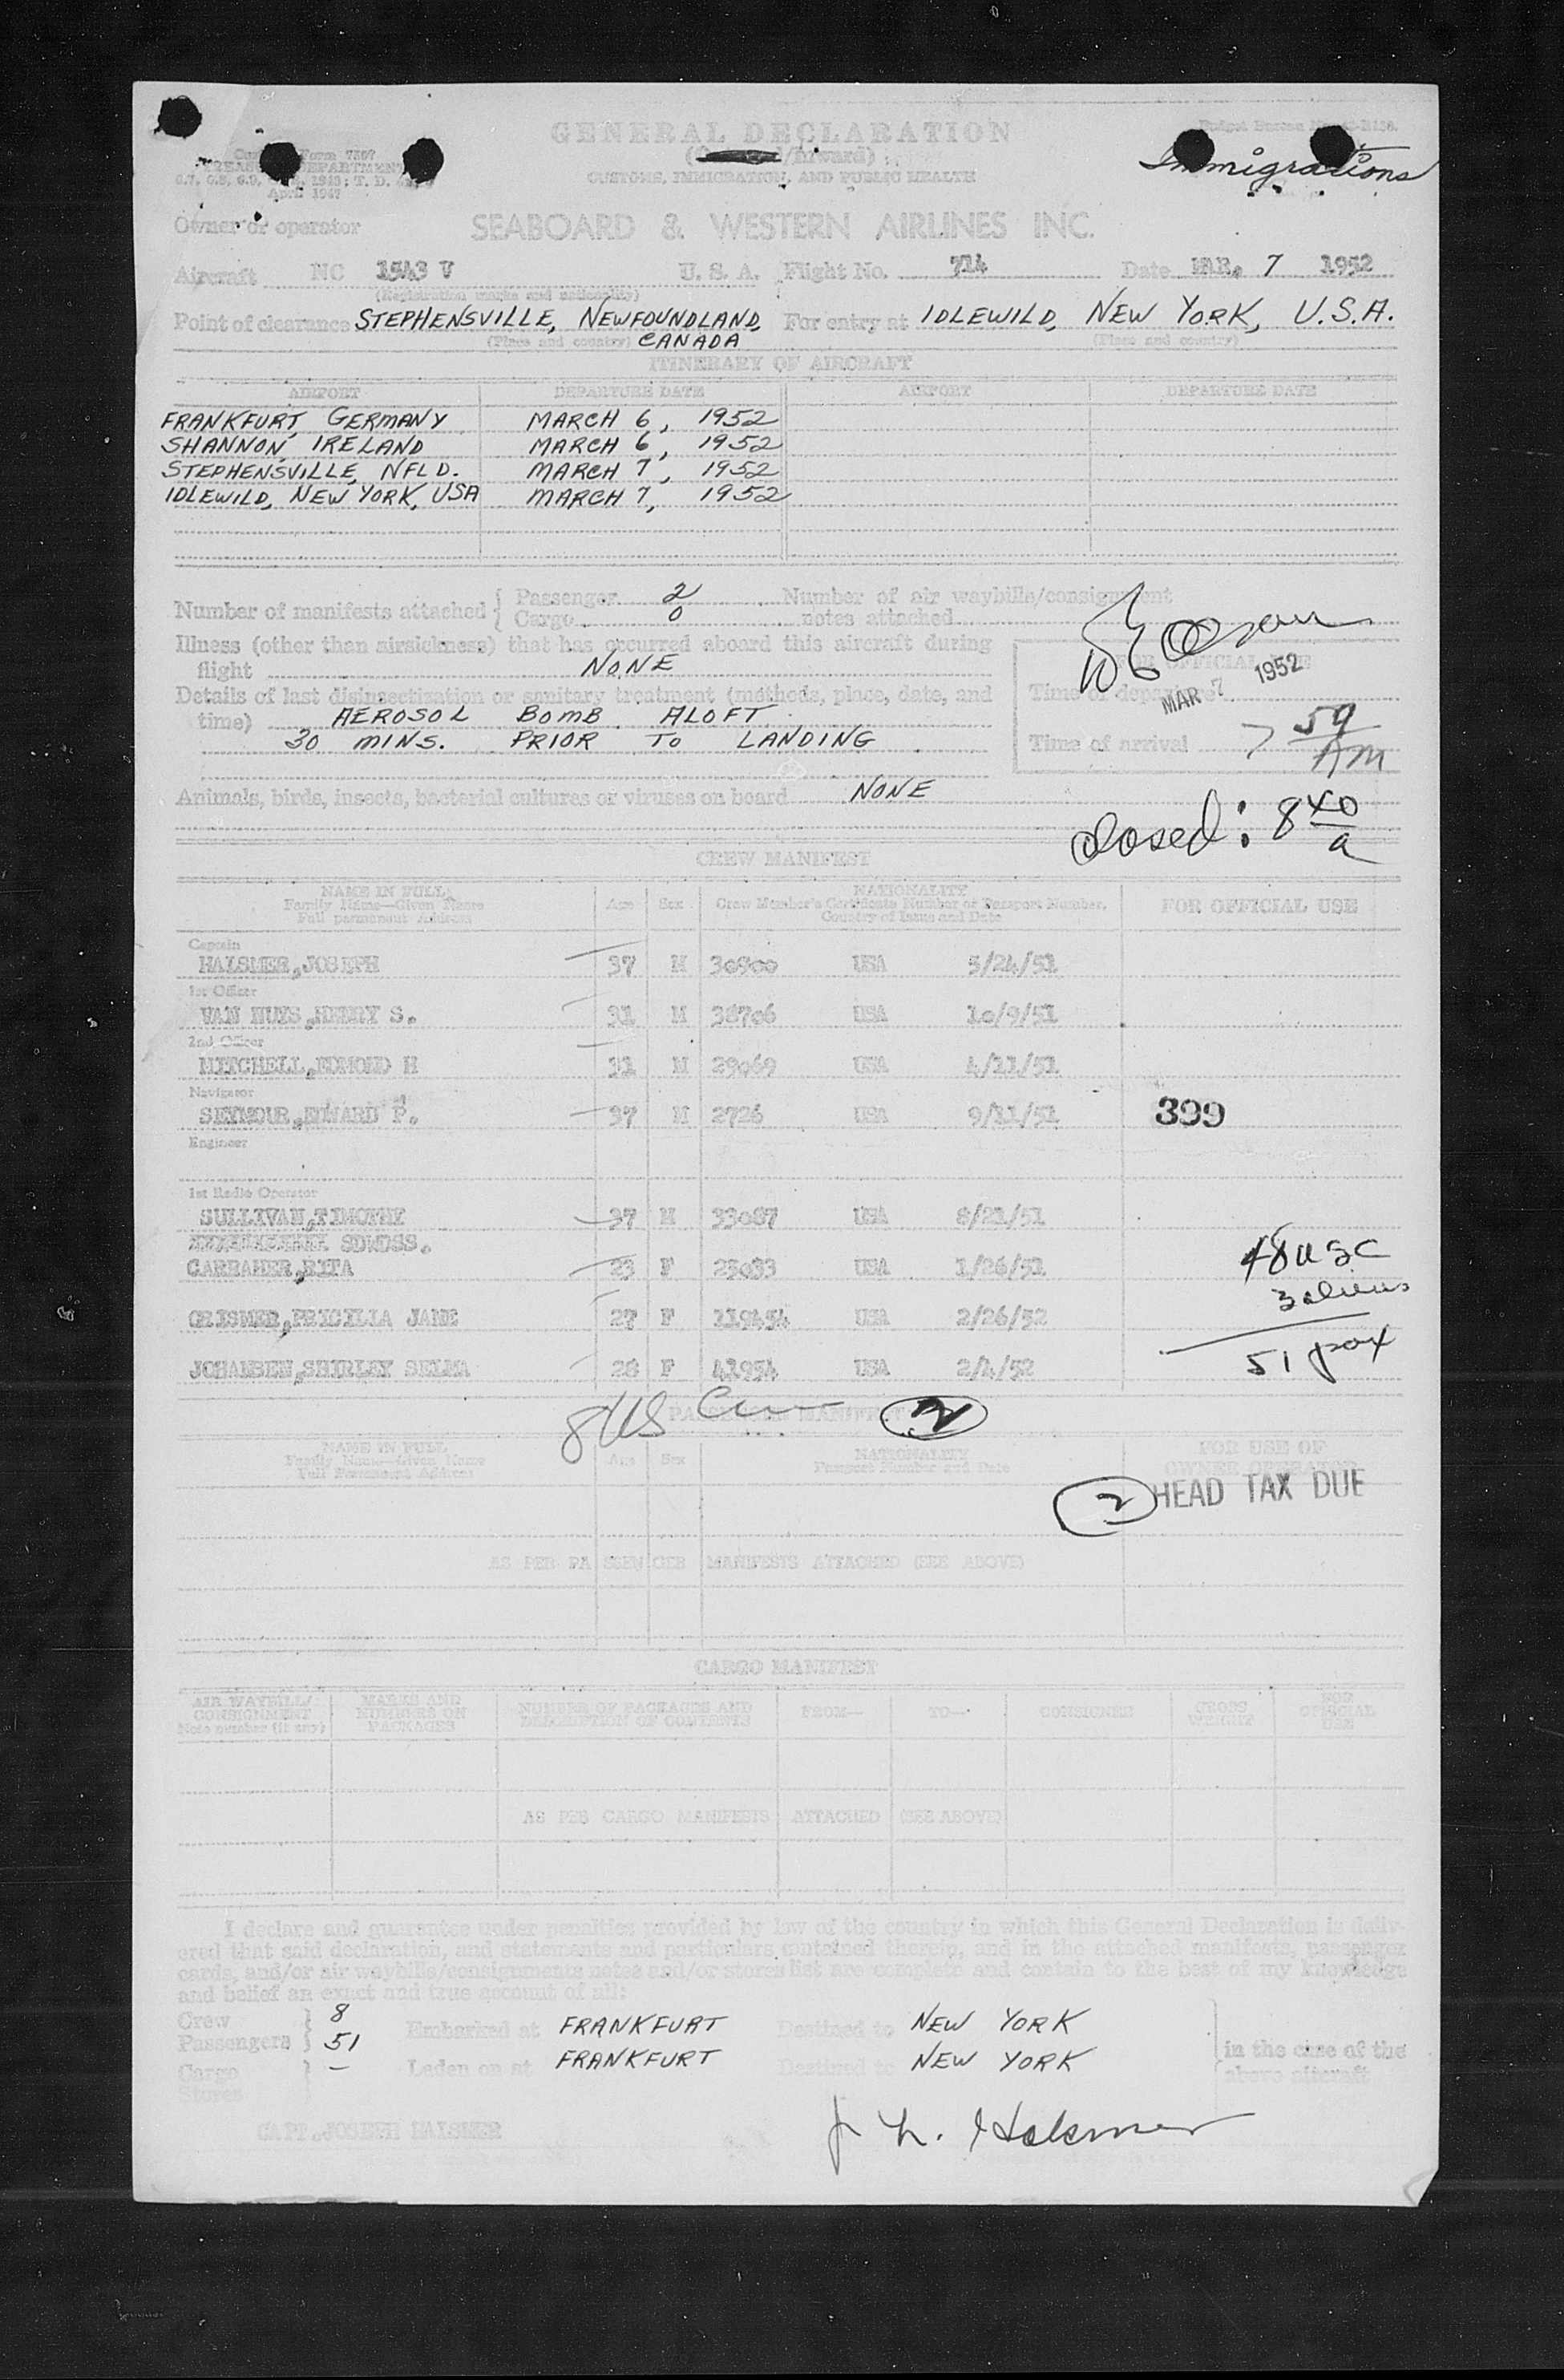 GENERAL DECLARATION
(Inward)
CUSTOMS, IMMIGRATION, AND PUBLIC HEALTH
Form 7507
TREASURY DEPARTMENT
April 1947
Immigrations
Owner or operator SEABOARD & WESTERN AIRLINES INC.
Aircraft NC 1543 V U. S. A. Flight No. 714 Date MAR. 7 1952
(Registration marks and nationality)
Point of clearance STEPHENSVILLE, NEWFOUNDLAND, For entry at IDLEWILD, NEW YORK, U.S.A.
(Place and country) CANADA (Place and country)
ITINERARY OF AIRCRAFT
AIRPORT DEPARTURE DATE AIRPORT DEPARTURE DATE
FRANKFURT, GERMANY MARCH 6, 1952
SHANNON, IRELAND MARCH 6, 1952
STEPHENSVILLE, NFLD. MARCH 7, 1952
IDLEWILD, NEW YORK, USA MARCH 7, 1952
Number of manifests attached { Passenger 2 Number of air waybills/consignment
Cargo 0 notes attached
Illness (other than airsickness) that has occurred aboard this aircraft during
flight NONE
FOR OFFICIAL USE
Details of last disinsectization or sanitary treatment (methods, place, date, and
time) AEROSOL BOMB ALOFT
30 MINS. PRIOR TO LANDING
Time of departure
MAR 7 1952
Time of arrival 7 59 AM
Animals, birds, insects, bacterial cultures or viruses on board NONE
closed: 8 40 a
CREW MANIFEST
NAME IN FULL
Family Name—Given Name
Full permanent Address
Age Sex
NATIONALITY
Crew Member's Certificate Number or Passport Number,
Country of Issue and Date
FOR OFFICIAL USE
Captain
HALSMER,JOSEPH 37 M 30900 USA 5/24/51
1st Officer
VAN HUYS,HENRY S. 31 M 38706 USA 10/9/51
2nd Officer
MITCHELL,EDMOND H 31 M 29069 USA 4/11/51
Navigator
SEYMOUR,EDWARD P. 37 M 2726 USA 9/11/51 399
Engineer
1st Radio Operator
SULLIVAN,TIMOTHY 37 M 33087 USA 8/21/51
SDWDSS.
CARRAHER,RITA 23 F 25033 USA 1/26/51
48 USC
3 aliens
CRISMER,PRICILIA JANE 27 F 119454 USA 2/26/52
51 pax
JOHANSEN,SHIRLEY SELMA 28 F 41954 USA 2/4/52
8 US 2
PASSENGER MANIFEST
NAME IN FULL
Family Name—Given Name
Full Permanent Address
Age Sex
NATIONALITY
Passport Number and Date
FOR USE OF
OWNER OPERATOR
2 HEAD TAX DUE
AS PER PASSENGER MANIFESTS ATTACHED (SEE ABOVE)
CARGO MANIFEST
AIR WAYBILL/
CONSIGNMENT
Note number (if any)
MARKS AND
NUMBERS ON
PACKAGES
NUMBER OF PACKAGES AND
DESCRIPTION OF CONTENTS
FROM— TO— CONSIGNEE
GROSS
WEIGHT
FOR
OFFICIAL
USE
AS PER CARGO MANIFESTS ATTACHED (SEE ABOVE)
I declare and guarantee under penalties provided by law of the country in which this General Declaration is deliv-
ered that said declaration, and statements and particulars contained therein, and in the attached manifests, passenger
cards, and/or air waybills/consignments notes and/or stores list are complete and contain to the best of my knowledge
and belief an exact and true account of all:
Crew 8
Passengers 51 Embarked at FRANKFURT Destined to NEW YORK
Cargo — Laden on at FRANKFURT Destined to NEW YORK
Stores
in the case of the
above aircraft
CAPT.JOSEPH HALSMER
J L. Halsmer